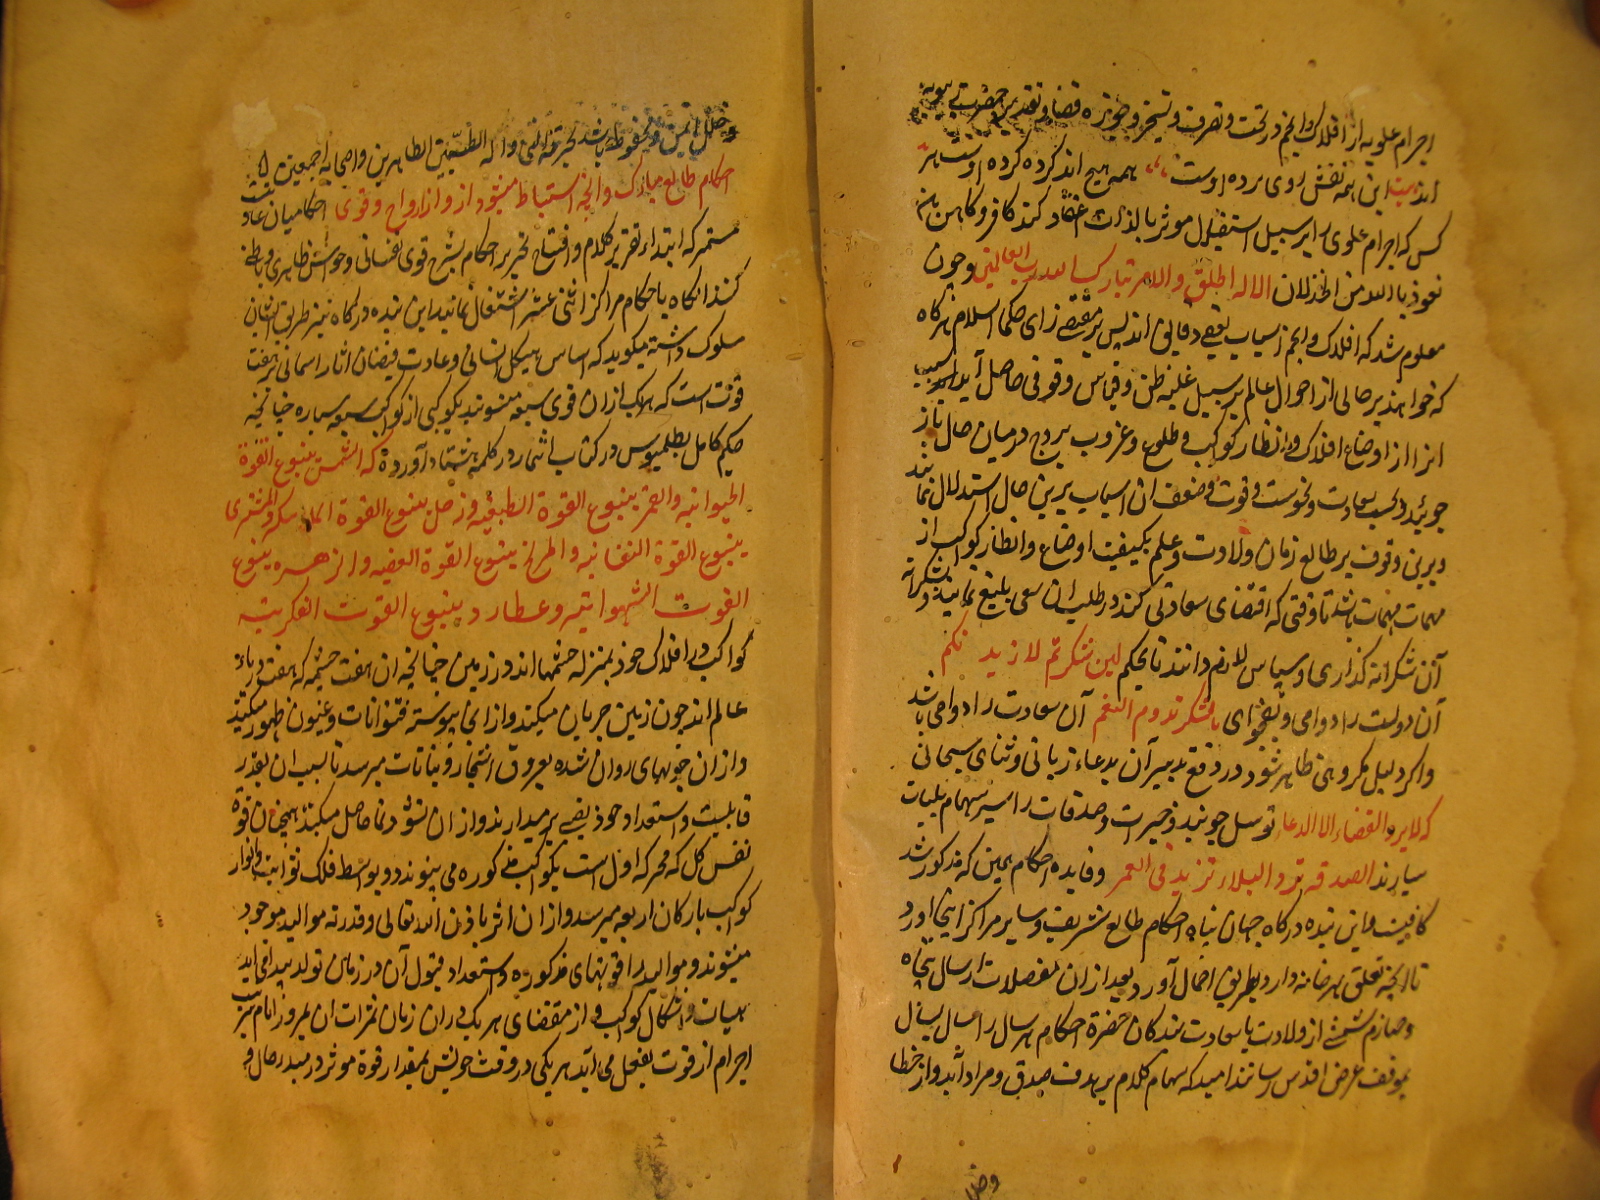 اجرام علویه از افلاک و انجم در تحت و تصرف و تسخیر و حوزه قضا و تقدیر حضرت ربوبیه
اند بیت این همه نقش روی پرده اوست همه هیچ اند کرده کرده اوست هر
کس که اجرام علوی را بر سبیل استقلال موثر بالذات اعتقاد کند کافر و کاهن باشد
نعوذ بالله من الخذلان الا له الخلق والامر تبارک الله رب العالمین و چون
معلوم شد که افلاک و انجم اسباب اند پس بر مقتضی رای حکماء اسلام هرگاه
که خواهند بر حالی از احوال عالم بر سبیل غلبه ظن و قیاس وقوفی حاصل آید
انرا از اوضاع افلاک و انظار کواکب و طلوع و غروب بروج درمیان حال باز
جویند و بحسب سعادت و نحوست و قوت و ضعف ان اسباب برین حال استدلال نمایند
و برین وقوف بر طالع زمان ولادت و علم بکیفیت اوضاع و انظار کواکب از
مهمات مهمات باشد تا وقتی که اقتضای سعادتی کند در طلب ان سعی بلیغ نمایند و شکرانه
آن شکرانه گذاری و سپاس لازم دانند تا بحکم لین شکرتم لازیدنکم
آن دولت را دوامی و بفحوای بالشکر تدوم النعم آن سعادت را دوامی باشد
و اگر دلیل مکروهی ظاهر شود در دفع تدبیر آن بدعاء زبانی و ثنای سبحانی
که لایرد القضاء الا الدعاء توسل جویند و خیرات و صدقات را سپر سهام بلیات
سازند الصدقه ترد البلاء و تزید فی العمر و فایده احکام همین که مذکور شد
کافیست و این بنده درگاه جهان پناه احکام طالع شریف و سایر مراکز اینجا اورد
تا انچه تعلق بهر خانه دارد بطریق اجمال آورد و بعد از ان مفصلات ارسال پنجاه
و چهارم شمسی از ولادت با سعادت بندگان حضرة احکام هر سال را سال بسال
بموقف عرض اقدس رساند امید که سهام کلام بر هدف صدق و مراد آید و از خطا
وخلل
وخلل ایمن و محفوظ باشد بحرمة النبی و اله الطیبین الطاهرین و اصحابه اجمعین
احکام طالع مبارک و انچه استنباط میشود ازو از ارواح و قوی احکامیان عادت
مستمر که ابتداء تقریر کلام و افتتاح تحریر احکام بشرح قوی نفسانی و حواس ظاهری و باطنی
کنند انگاه باحکام مراکز اثنی عشر اشتغال نمایند این بنده درگاه نیز طریق ایشان
سلوک داشته میگوید که اساس هیکل انسانی و عادت فیضان اثار اسمانی بر هفت
قوت است که هر یک ازان قوی سبعه منسوبند بکوکبی از کواکب سبعه سیاره چنانچه
حکیم کامل بطلمیوس در کتاب اثمار در کلمه هشتاد آورده که الشمس ینبوع القوة
الحیوانیه والقمر ینبوع القوة الطبیعیه و زحل ینبوع القوة الماسکه والمشتری
ینبوع القوة النفسانیه والمریخ ینبوع القوة الغضبیه والزهره ینبوع
القوت الشهوانیه و عطارد ینبوع القوت الفکریه
کواکب در افلاک خود بمنزله چشمها اند در زمین چنانچه ان هفت چشمه که هفت دریای
عالم اند چون زمین جریان میکند و ازان پیوسته قنوانات و عیون ظهور میکنند
و ازان جویهای روان شده بعروق اشجار و نباتات میرسد تا بسبب ان بقدر
قابلیت و استعداد خود نصیبی برمیدارند و ازان نشو و نما حاصل میکنند همچنان قوة
نفس کل که محرکه اول است بکواکب مذکوره می پیوندد و بواسطه فلک ثوابت و انوار
کواکب بارکان اربعه میرسد و ازان اثر باذن الله تعالی و قدرته موالید موجود
میشوند و موالید را قوتهای مذکوره و استعداد قبول آن در زمان تولد پیدا می اید
هیات و اشکال کواکب و از مقتضای هر یک دران زمان ثمرات ان بمرور ایام بسبب
اجرام از قوت بفعل می آید هر یکی در وقت خویش بمقدار قوة موثر در مبدء حال و